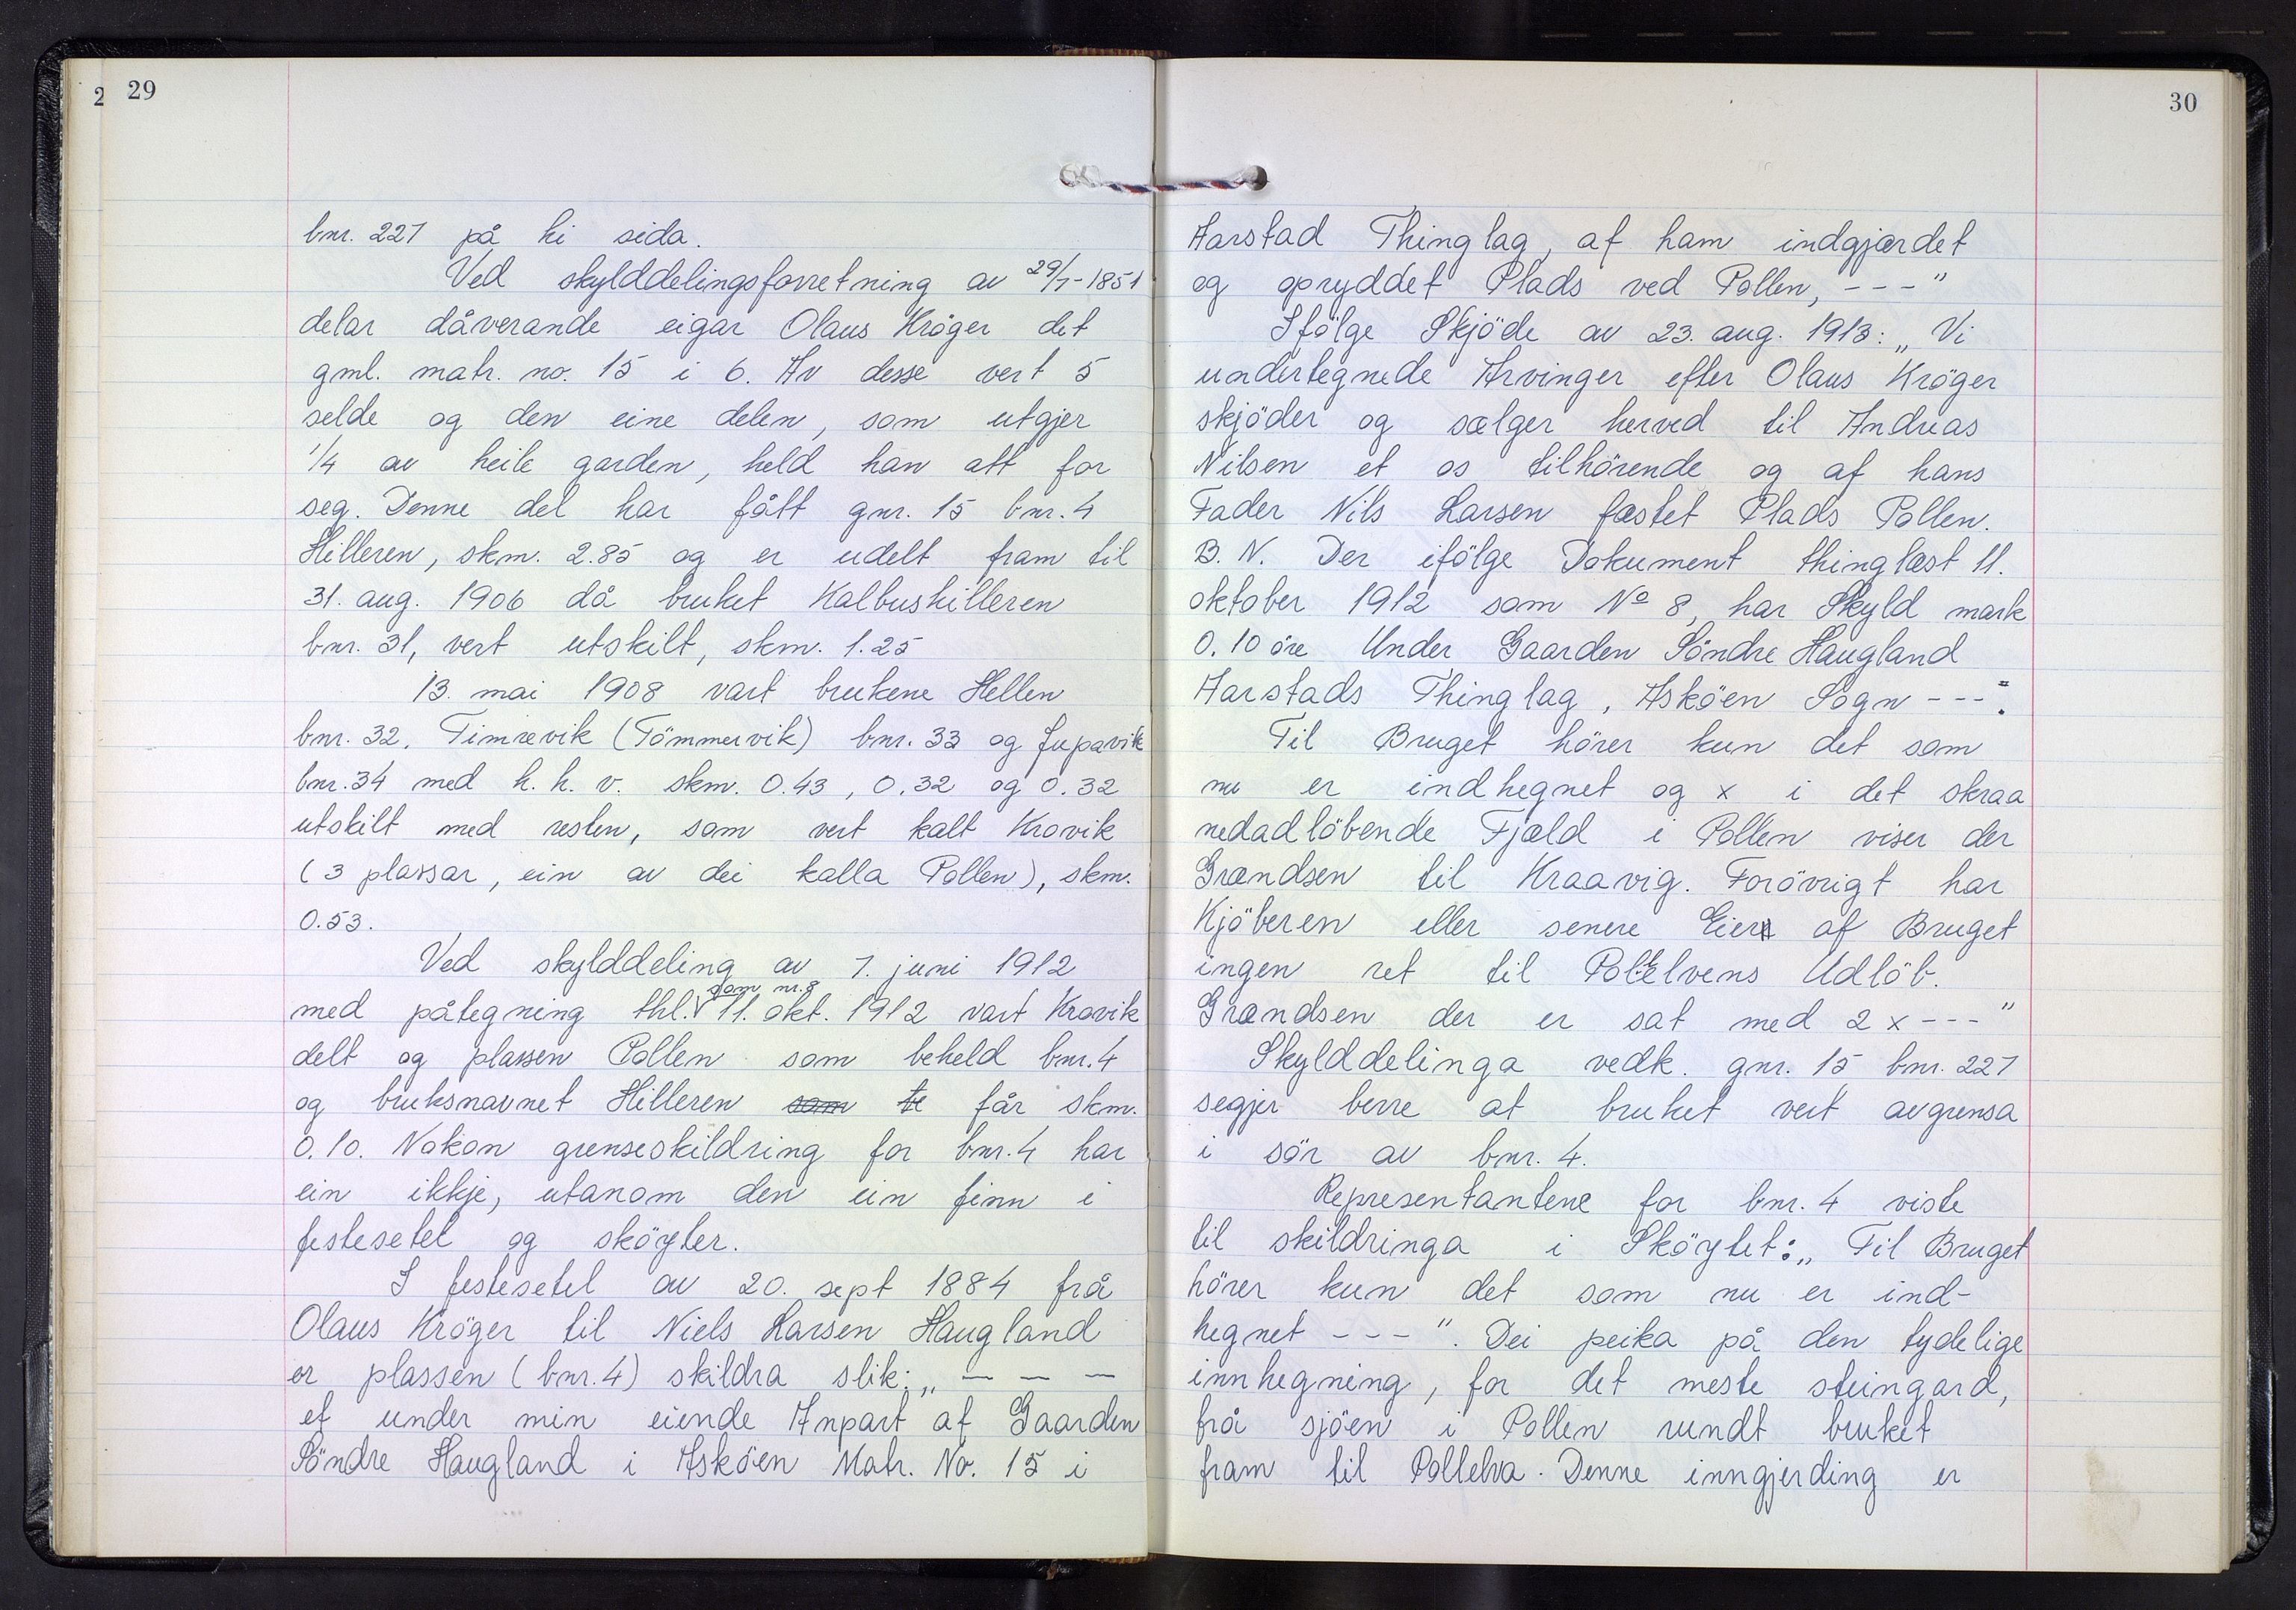 2 29
bnr. 227 på hi sida.
Ved skylddelingsforretning av 29/7-1851
delar dåverande eigar Olaus Kröger det
gml. matr. no. 15 i 6. Av desse vert 5
selde og den eine delen, som utgjer
1/4 av heile garden, held han att for
seg. Denne del har fått gnr. 15 bnr. 4
Hilleren, skm. 2.85 og er udelt fram til
31. aug. 1906 då bruket Kalbushilleren
bnr. 31, vert utskilt, skm. 1.25
13. mai 1908 vart brukene Hellen
bnr. 32, Timrevik (Tömmervik) bnr. 33 og Jupavik
bnr. 34 med h. h. v. skm. 0.43, 0.32 og 0.32
utskilt med resten, som vert kalt Kravik
(3 plassar, ein av dei kalla Pollen), skm.
0.53.
Ved skylddeling av 7. juni 1912
som nr. 8
med påtegning thl. 11. okt. 1912 vart Kravik
delt og plassen Pollen som beheld bnr. 4
og bruksnavnet Hilleren som te får skm.
0.10. Nokon grenseskildring for bnr. 4 har
ein ikkje, utanom den ein finn i
festesetel og sköyter.
I festesetel av 20. sept 1884 frå
Olaus Kröger til Niels Larsen Haugland
er plassen (bnr. 4) skildra slik: „ — — —
et under min eiende Anpart af Gaarden
Söndre Haugland i Asköen Matr. No. 15 i
30
Aarstad Thinglag, af ham indgjærdet
og opryddet Plads ved Pollen, - - - "
Ifölge Skjöde av 23. aug. 1913: „ Vi
undertegnede Arvinger efter Olaus Kröger
skjöder og sælger herved til Andreas
Nilsen et os tilhörende og af hans
Fader Nils Larsen fæstet Plads Pollen.
B. N. Der ifölge Dokument thinglæst 11.
oktober 1912 som No 8, har Skyld mark
0.10 öre Under Gaarden Söndre Haugland
Aarstads Thinglag, Asköen Sogn - - - ":
Til Bruget hörer kun det som
nu er indhegnet og x i det skraa
nedadlöbende Fjæld i Pollen viser der
Grændsen til Kraavig. Forövrigt har
Kjöberen eller senere Eier af Bruget
ingen ret til Pollelvens Udlöb.
Grændsen der er sat med 2 x - - - "
Skylddelinga vedk. gnr. 15 bnr. 227
segjer berre at bruket vert avgrensa
i sör av bnr. 4.
Representantene for bnr. 4 viste
til skildringa i Sköytet: „ Til Bruget
hörer kun det som nu er ind-
hegnet - - - ". Dei peika på den tydelige
innhegning, for det meste steingard,
frå sjöen i Pollen rundt bruket
fram til Pollelva. Denne inngjerding er